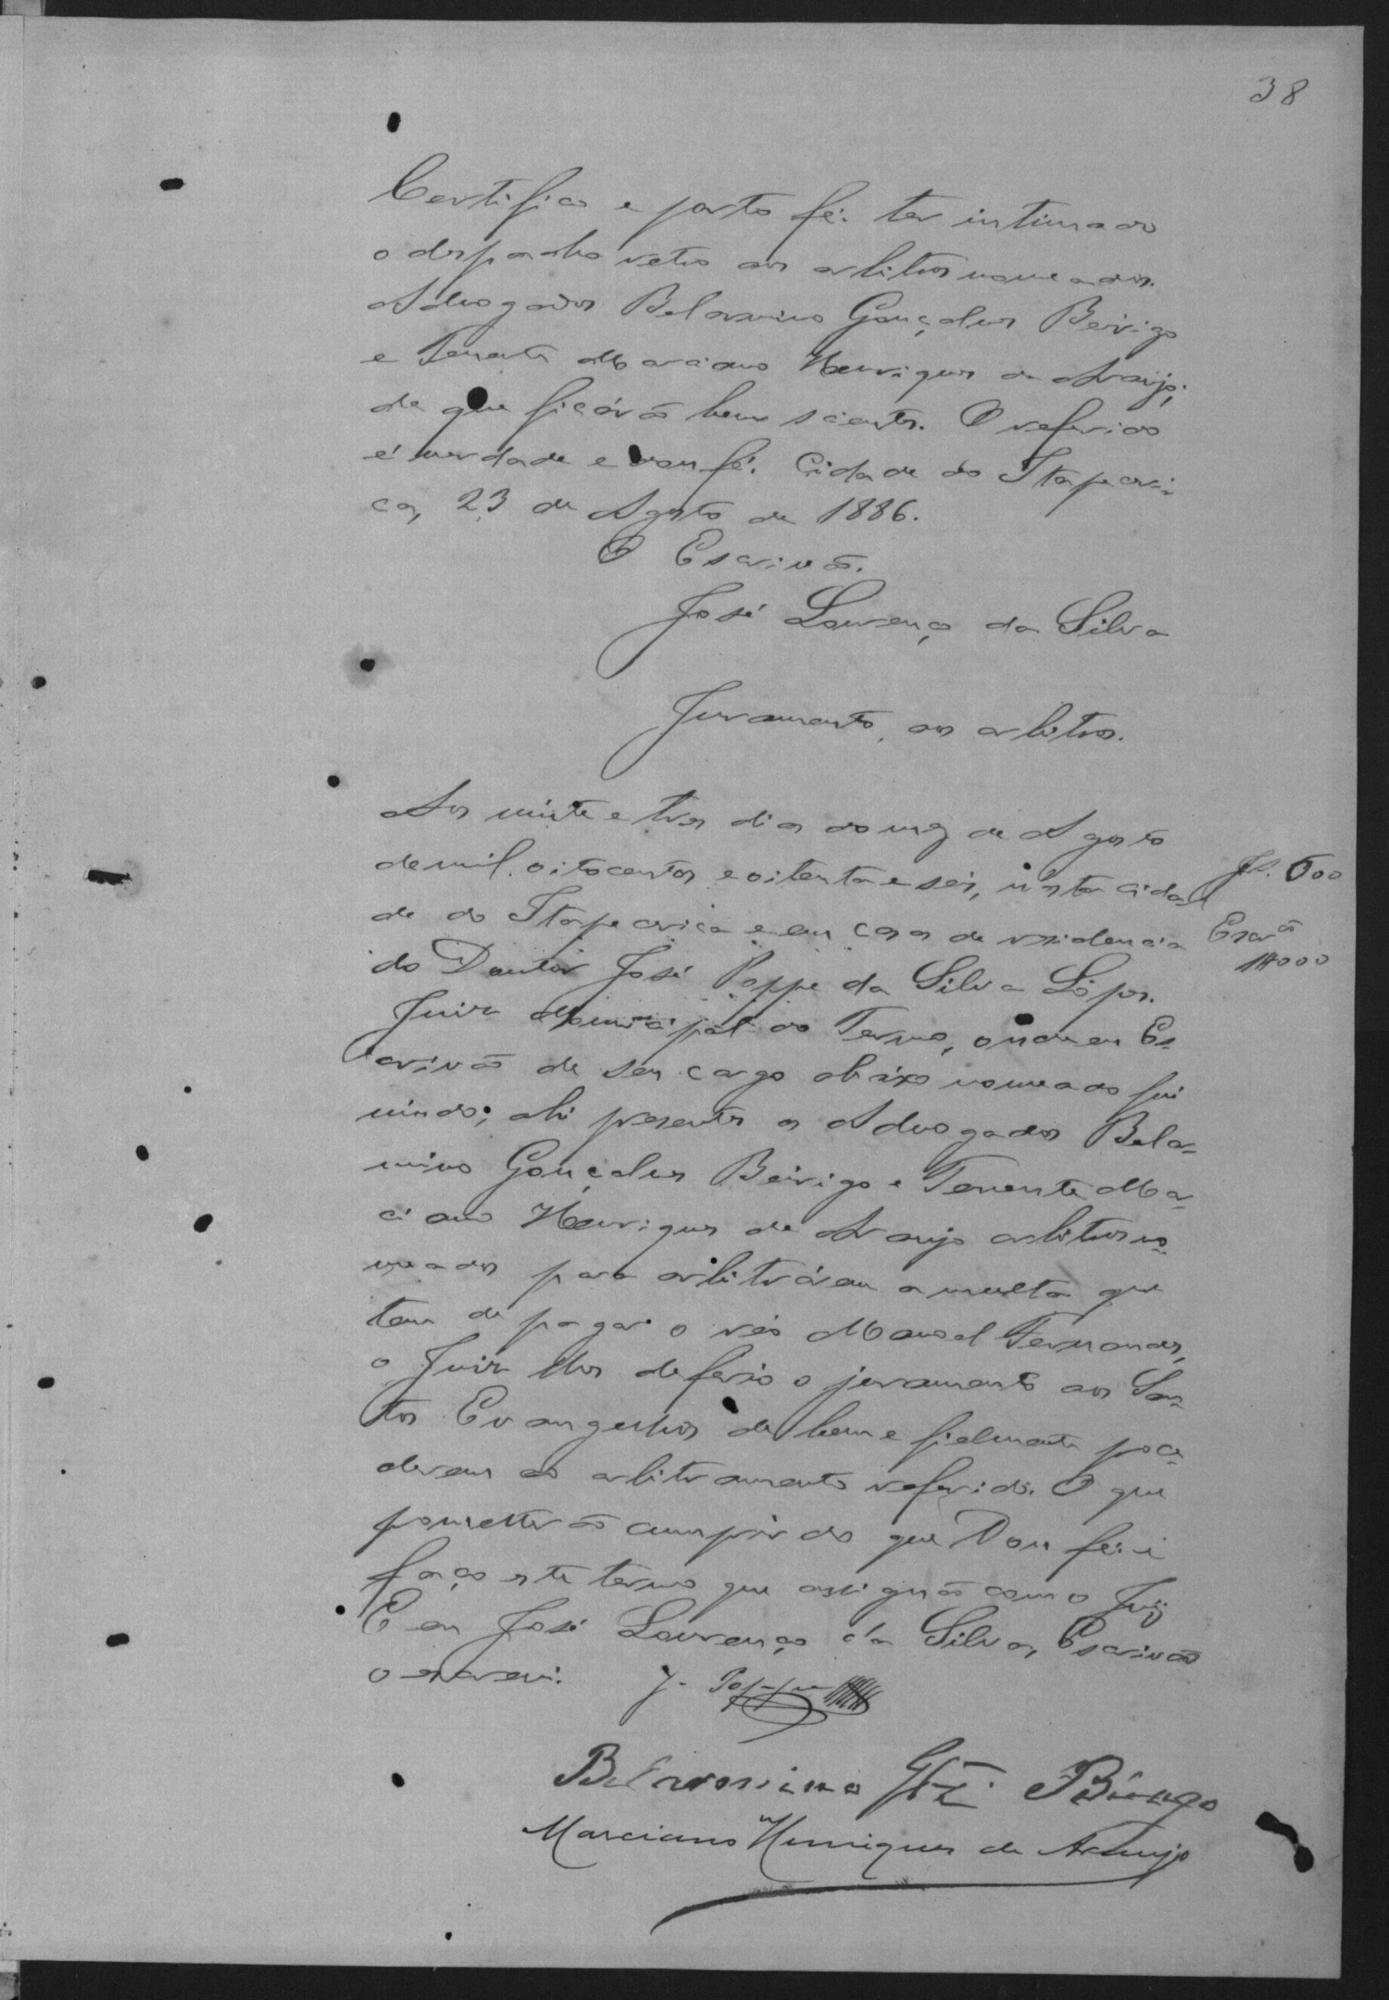 38
Certifico e porto fé. ter intimado
o despacho retro aos arbitros nomeados.
Advogados Belarmino Gonçalves Beirigo
e Tenente Marciano Henriques de Araujo;
de que ficárão bem scientes. O referido
é verdade e dou fé. Cidade do Itaperi-
ca, 23 de Agosto de 1886.
O Escrivão.
José Lourenço da Silva
Juramento aos arbitros.
Aos vinte e tres dias do mez de Agosto
de mil oitocentos e oitenta e seis, n'esta cida-
de do Itapecirica e em casa de residencia
do Doutor José Poppe da Silva Lopes.
Juiz Municipal do Termo, onde eu Es-
crivão de seu cargo abaixo nomeado fui
vindo; ahi presentes os Advogados Bela-
mino Gonçalves Beirigo e Tenente Mar-
ciano Henriques de Araujo arbitros no-
meados para arbitrárem a multa que
tem de pagar o réo Manoel Fernandes,
o Juiz lhes deferio o juramento aos San-
tos Evangelhos de bem e fielmente proce-
derem ao arbitramento referido. O que
prometterão cumprir do que Dou fé. i
faço este termo que assignão com o Juiz
E eu José Lourenço da Silva, Escrivão
o escrevi. J. Poppe
Belarmino Glz Beirigo
Marciano Henriques de Araujo
Jz. 500
Escrão
1#000